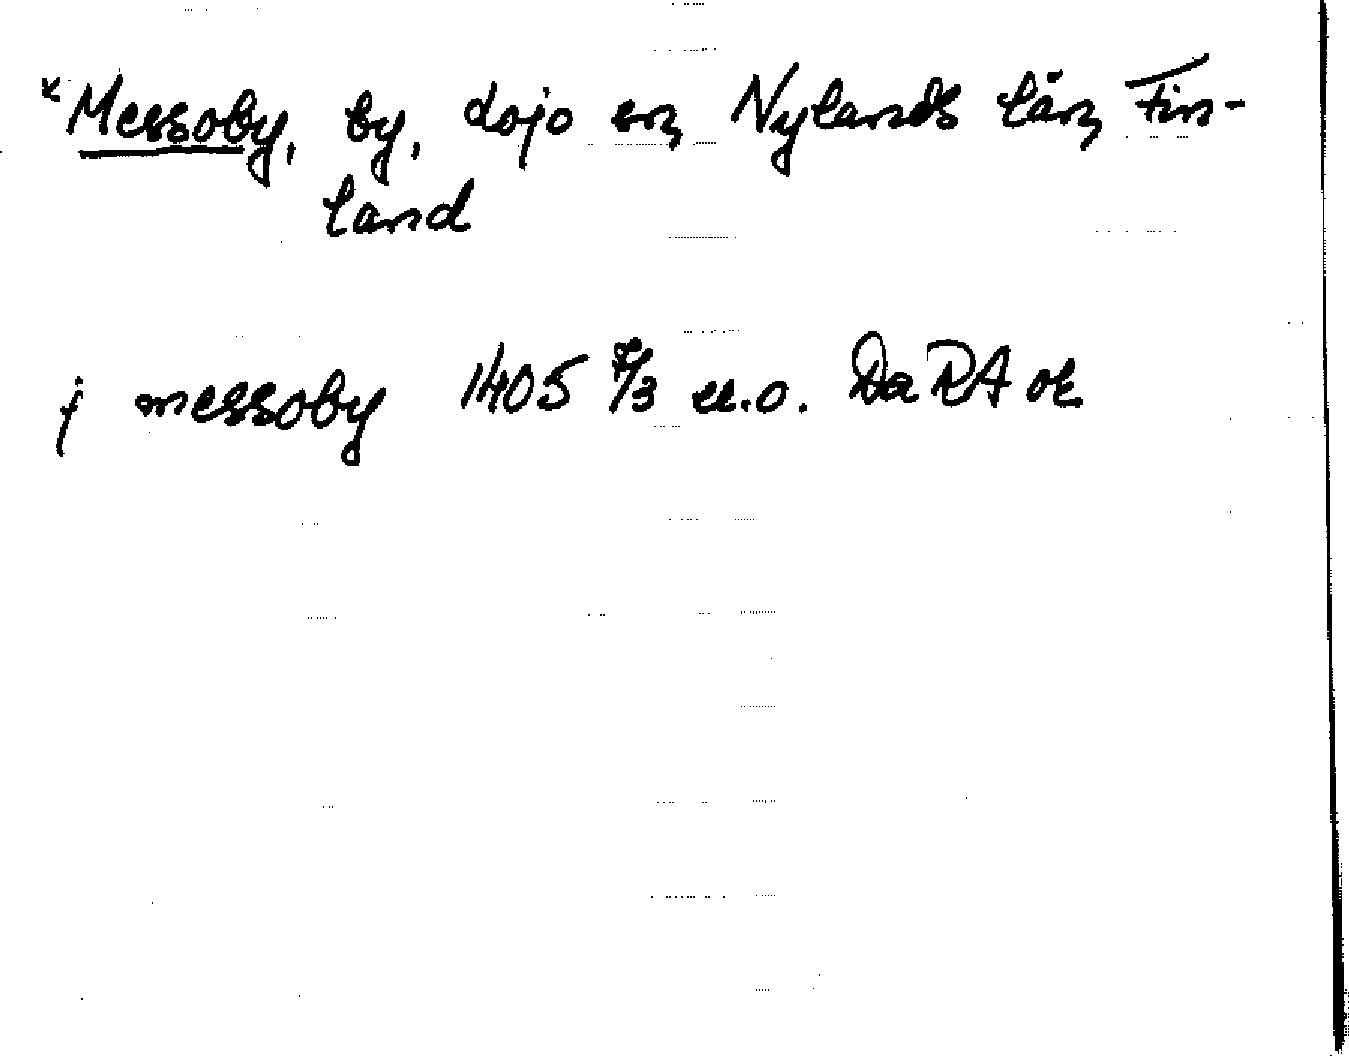 *Messoby, by, Lojo sn, Nylands län, Fin-
land
j messoby 1405 7/3 u.o. Da RA or